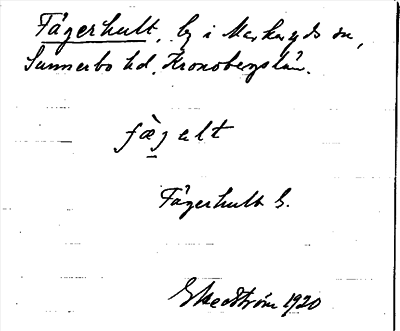 Fågerhult, by i Markaryds sn,
Sunnerbo hd, Kronobergs län.
fæ̀jelt
Fågerhult G.
E Hedström 1920